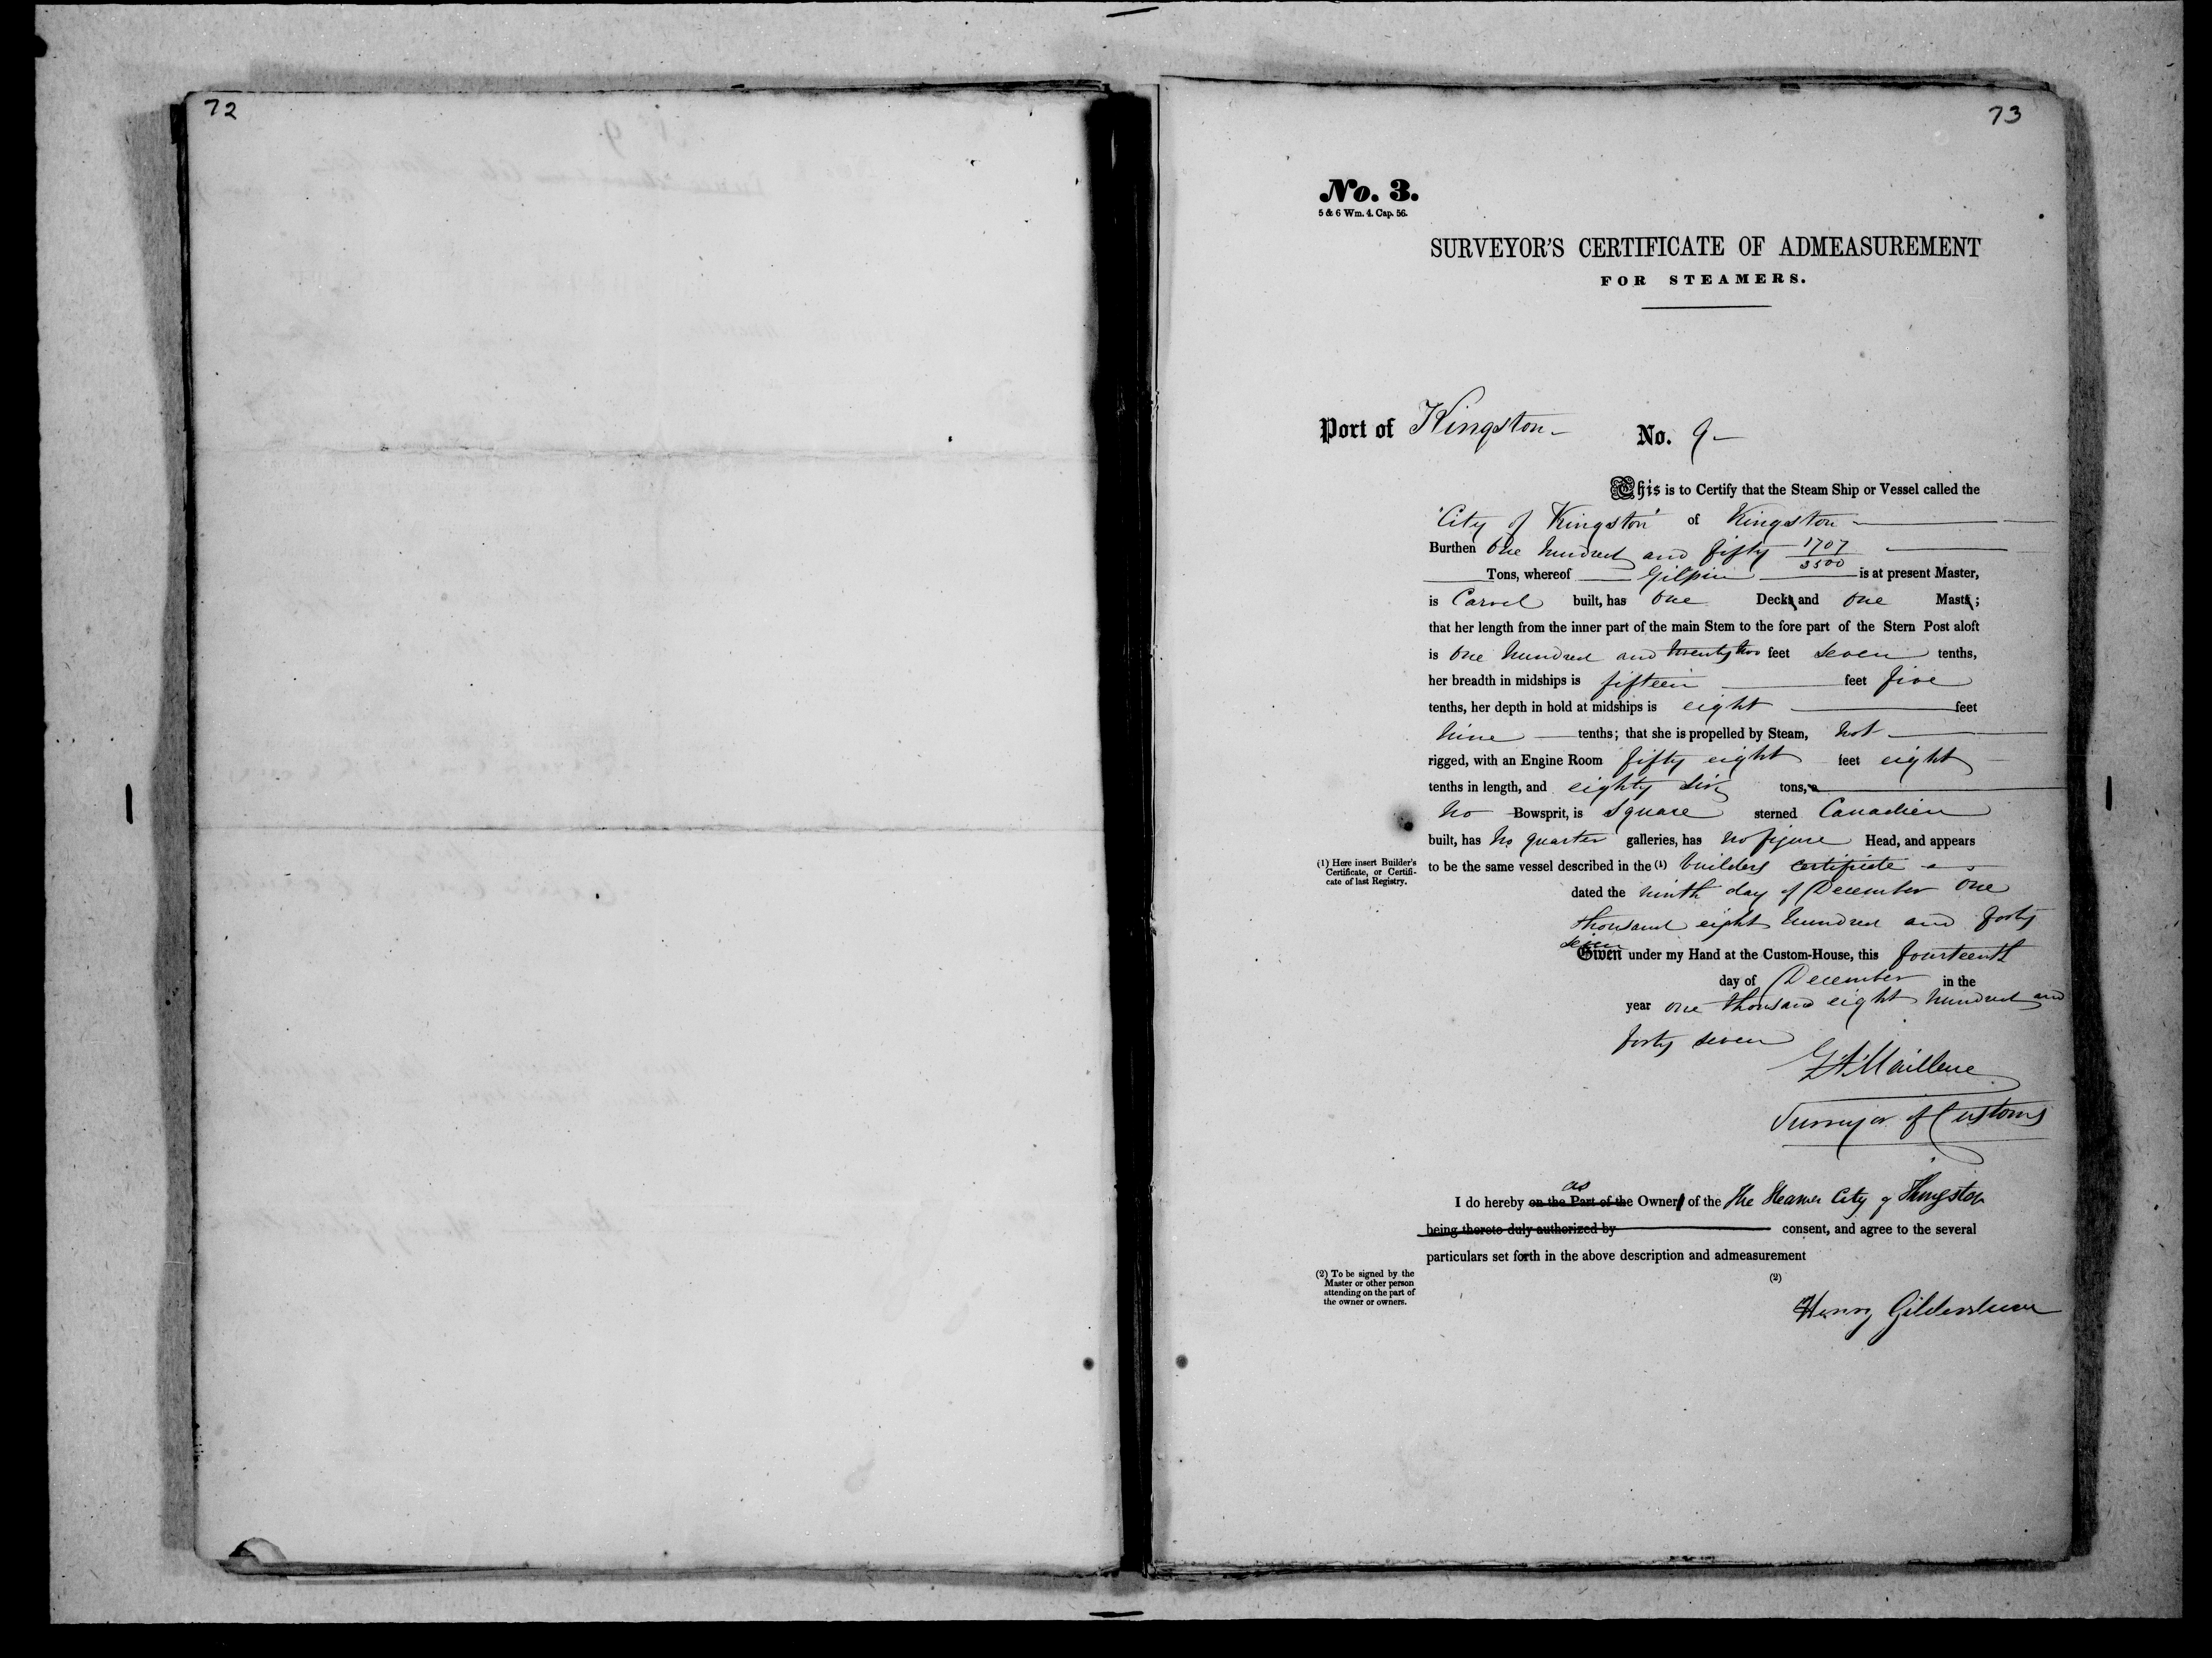 72
73
No. 3.
5 & 6 Wm. 4. Cap. 56.
SURVEYOR'S CERTIFICATE OF ADMEASUREMENT
FOR STEAMERS.
Port of Kingston – No. 9 –
This is to Certify that the Steam Ship or Vessel called the
"City of Kingston" of Kingston
Burthen One hundred and fifty 1707/3500
Tons, whereof Gilpin is at present Master,
is Carvel built, has One Deck and One Mast;
that her length from the inner part of the main Stem to the fore part of the Stern Post aloft
is One hundred and twenty two feet seven tenths,
her breadth in midships is fifteen feet five
tenths, her depth in hold at midships is eight feet
nine tenths; that she is propelled by Steam, not
rigged, with an Engine Room fifty eight feet eight
tenths in length, and eighty six tons,
no Bowsprit, is square sterned Canadien
built, has no quarter galleries, has no figure Head, and appears
(1) Here insert Builder's Certificate, or Certificate of last Registry.
to be the same vessel described in the (1) builders certificate
dated the ninth day of December One
thousand eight hundred and forty
seven
Given under my Hand at the Custom-House, this fourteenth
day of December in the
year one thousand eight hundred and
forty seven
Surveyor of Customs
as
I do hereby on the Part of the Owner of the The Steamer City of Kingston
being thereto duly authorized by consent, and agree to the several
particulars set forth in the above description and admeasurement
(2) To be signed by the Master or other person attending on the part of the owner or owners.
(2)
Henry Gildersleeve